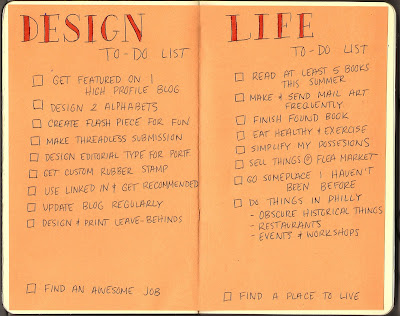 DESIGN
TO-DO LIST
GET FEATURED ON 1
HIGH PROFILE BLOG
DESIGN 2 ALPHABETS
CREATE FLASH PIECE FOR FUN
MAKE THREADLESS SUBMISSION
DESIGN EDITORIAL TYPE FOR PORTF.
GET CUSTOM RUBBER STAMP
USE LINKED IN & GET RECOMMENDED
UPDATE BLOG REGULARLY
DESIGN & PRINT LEAVE-BEHINDS
FIND AN AWESOME JOB
LIFE
TO-DO LIST
READ AT LEAST 5 BOOKS
THIS SUMMER
MAKE & SEND MAIL ART
FREQUENTLY
FINISH FOUND BOOK
EAT HEALTHY & EXERCISE
SIMPLIFY MY POSSESIONS
SELL THINGS @ FLEA MARKET
GO SOMEPLACE I HAVEN'T
BEEN BEFORE
DO THINGS IN PHILLY
- OBSCURE HISTORICAL THINGS
- RESTAURANTS
- EVENTS & WORKSHOPS
FIND A PLACE TO LIVE